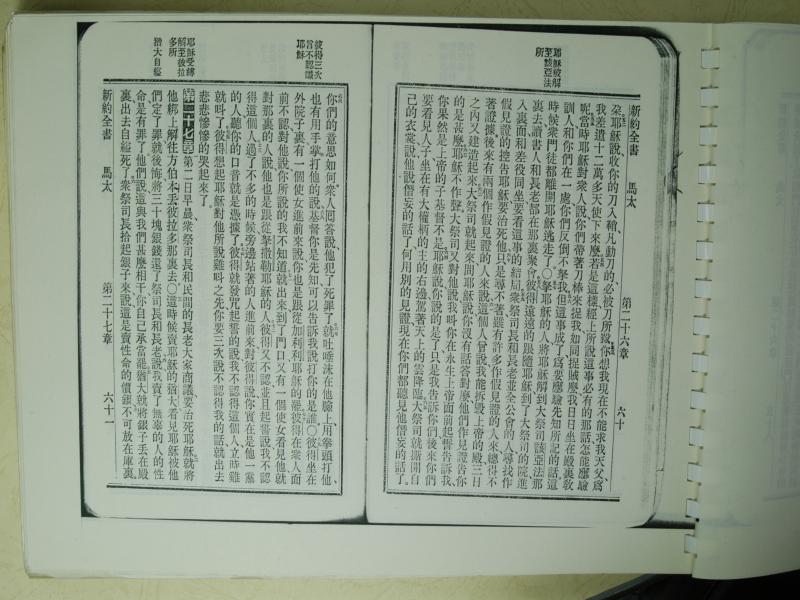 新約全書 馬太 第二十六章 六十
耶穌被解
至該亞法
所
朶耶穌說收你的刀入鞘凡動刀的必被刀所殺你想我現在不能求我天父爲
我差遣十二萬多天使下來麽若是這樣經上所說這事必有的那話怎能應驗
呢當時耶穌對衆人說你們帶著刀棒來捉我如同捉賊麽我日日坐在殿裏敎
訓人和你們在一處你們反倒不拏我但這事成了爲要應驗先知所記的話這
時候衆門徒都離開耶穌逃走了○拏耶穌的人將耶穌解到大祭司該亞法那
裏去讀書人和長老都在那裏聚會彼得遠遠的跟隨耶穌到了大祭司的院進
入裏面和差役同坐要看這事的結局衆祭司長和長老並全公會的人尋找作
假見證的控告耶穌要治死他只是尋不著雖有許多作假見證的人來總得不
著證據後來有兩個作假見證的人來說這個人曾說我能拆毀上帝的殿三日
之內又建造起來大祭司起來問耶穌說你沒有話答對麽他們作見證告你
的是甚麽耶穌不作聲大祭司又對他說我呌你在永生上帝面前起誓告訴我
你果然是上帝的子基督不是耶穌說你說的是了只是我告訴你們後來你們
要看見人子坐在有大權柄的主的右邊駕著天上的雲降臨大祭司就撕開自
己的衣裳說他說僭妄的話了何用別的見證現在你們都聽見他僭妄的話了
彼得三次
言不認識
耶穌
耶穌受縛
解至彼拉
多所
猶大自縊
你們的意思如何衆人囘答說他犯了死罪了就吐唾沫在他臉上用拳頭打他
也有用手掌打他的說基督你是先知可以告訴我說打你的是誰○彼得坐在
外院子裏有一個使女進前來說你也是跟從加利利耶穌的罷彼得在衆人面
前不認對他說你所說的我不知道就出來到了門口又有一個使女看見他就
對那裏的人說他也是跟從拏撒勒耶穌的人彼得又不認並且起誓說我不認
得這個人過了不多的時候旁邊站著的人進前來對彼得說你實在是他一黨
的人聽你的口音就是憑據了彼得就發咒起誓的說我不認得這個人立時雞
就呌了彼得想起耶穌對他所說雞呌之先你要三次說不認得我的話就出去
悲悲慘慘的哭起來了
第二十七章第二日早晨衆祭司長和民間的長老大家商議要治死耶穌就將
他綁上解往方伯本丟彼拉多那裏去○這時候賣耶穌的猶大看見耶穌被他
們定了罪就後悔將三十塊銀錢還了祭司長和長老說我賣了無辜的人的性
命是有罪了他們說這與我們甚麽相干你自己承當罷猶大就將銀子丟在殿
裏出去自縊死了衆祭司長拾起銀子來說這是賣性命的價銀不可放在庫裏
新約全書 馬太 第二十七章 六十一